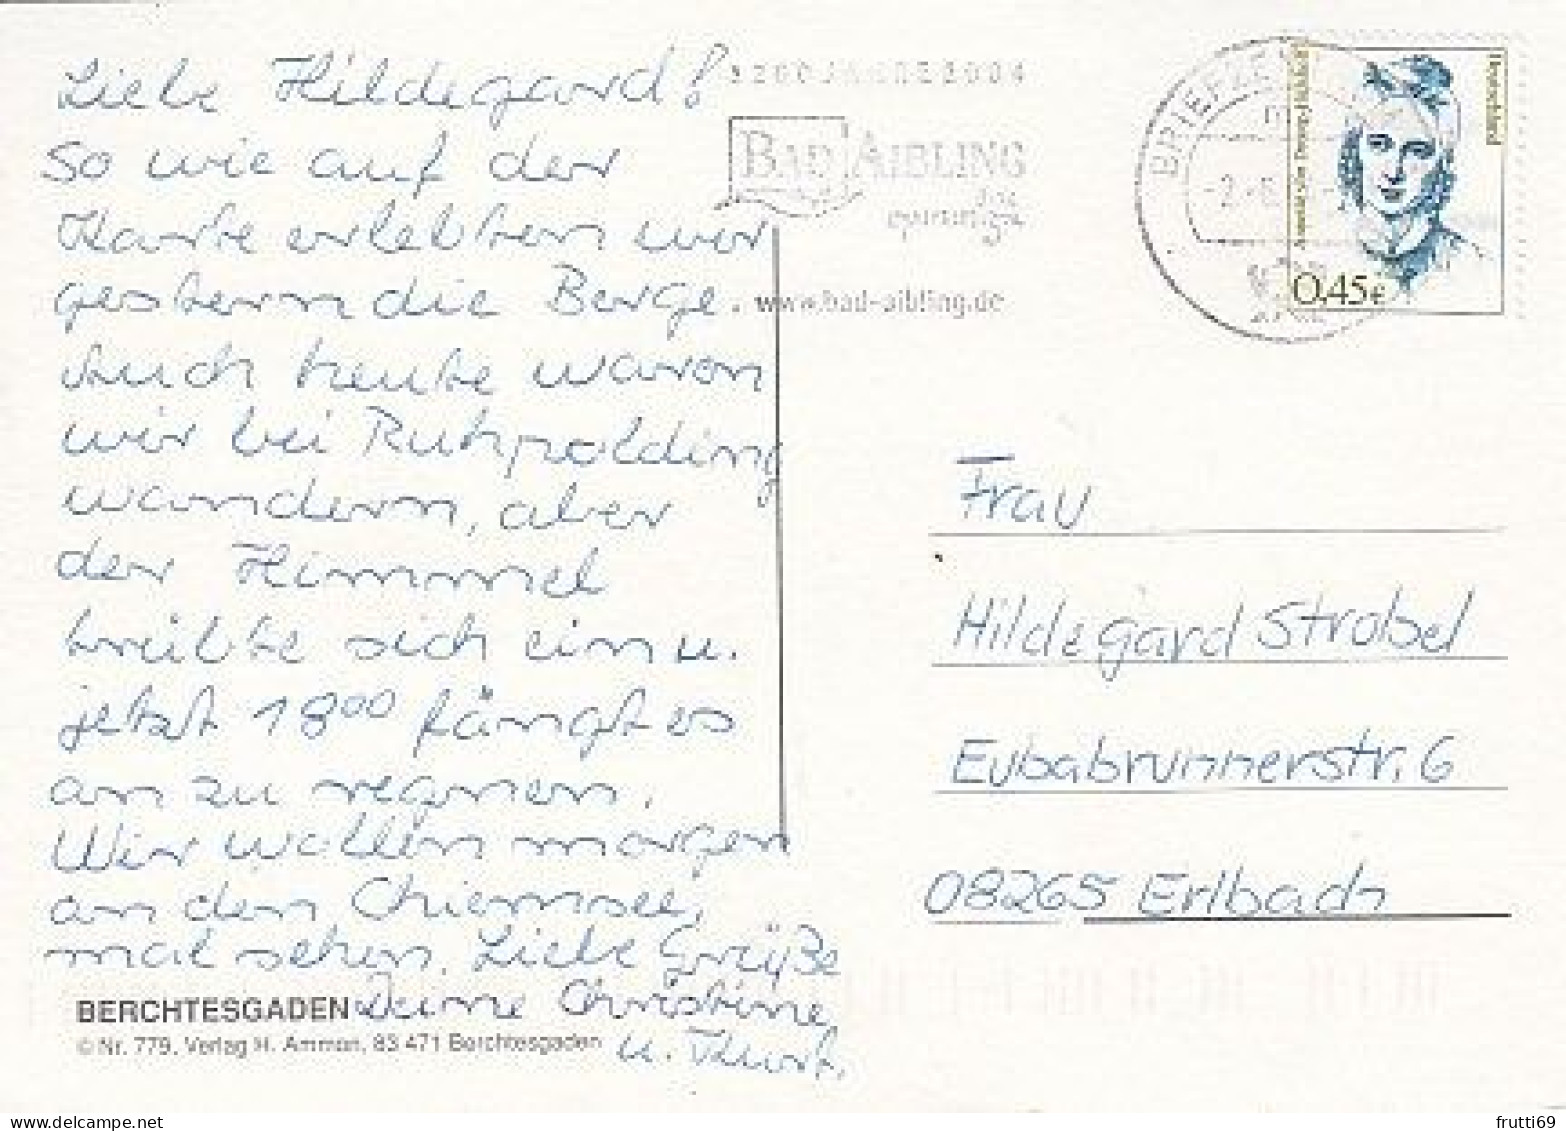 Liebe Hildegard!
So wie auf der
Karte erlebten wir
gestern die Berge.
Auch heute waren
wir bei Ruhpolding
wandern, aber
der Himmel
trübte sich ein u.
jetzt 18⁰⁰ fängt es
an zu regnen.
Wir wollen morgen
an den Chiemsee,
mal sehen. Liebe Grüße
Deine Christine
u. Kurt.
BERCHTESGADEN
© Nr. 779, Verlag H. Ammon, 83 471 Berchtesgaden
BAD AIBLING
www.bad-aibling.de
BRIEFZE
Deutschland
0,45€
Frau
Hildegard Strobel
Eubabrunnerstr. 6
08265 Erlbach
frutti69